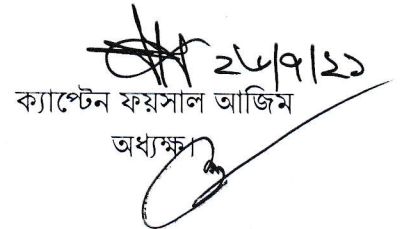 ২৮/৭/২১
ক্যাপ্টেন ফয়সাল আজিম
অধ্যক্ষ।